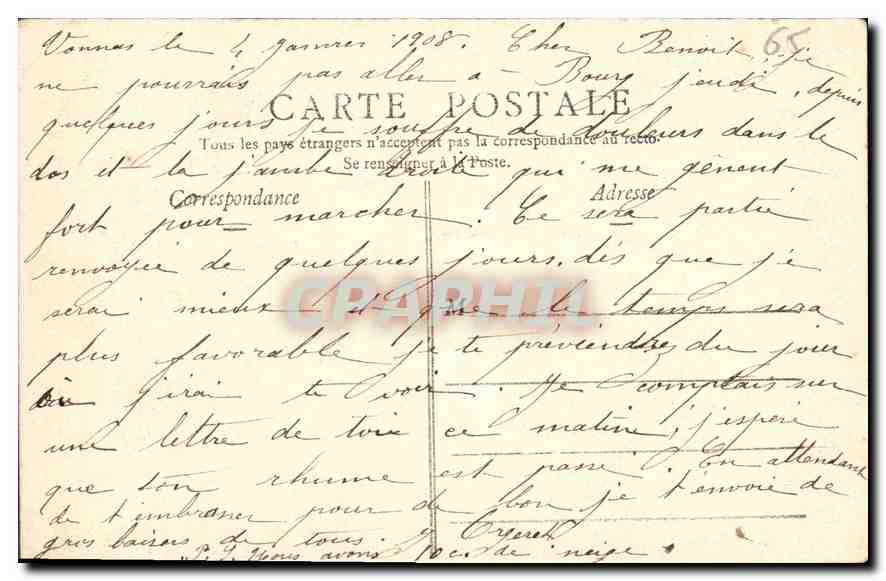 Vonnas le 4 janvier 1908. Cher Benoit, je
65
ne pourrais pas aller à Bourg jeudi, depuis
CARTE POSTALE
quelques jours je souffre de douleurs dans le
Tous les pays étrangers n'acceptent pas la correspondance au recto.
Se renseigner à la Poste.
dos et la jambe droite qui me gênent
Correspondance
Adresse
fort pour marcher. Ce sera partie
renvoyée de quelques jours. dés que je
serai mieux et que le temps sera
M
CPAPHIL
plus favorable je te préviendrez du jour
où j'irai te voir. Je comptais sur
une lettre de toi ce matin, j'espère
que ton rhume est passé. En attendant
de t'embrasser pour de bon je t'envoie de
gros baisers de tous.
P.S. Nous avons 10 c. de neige.